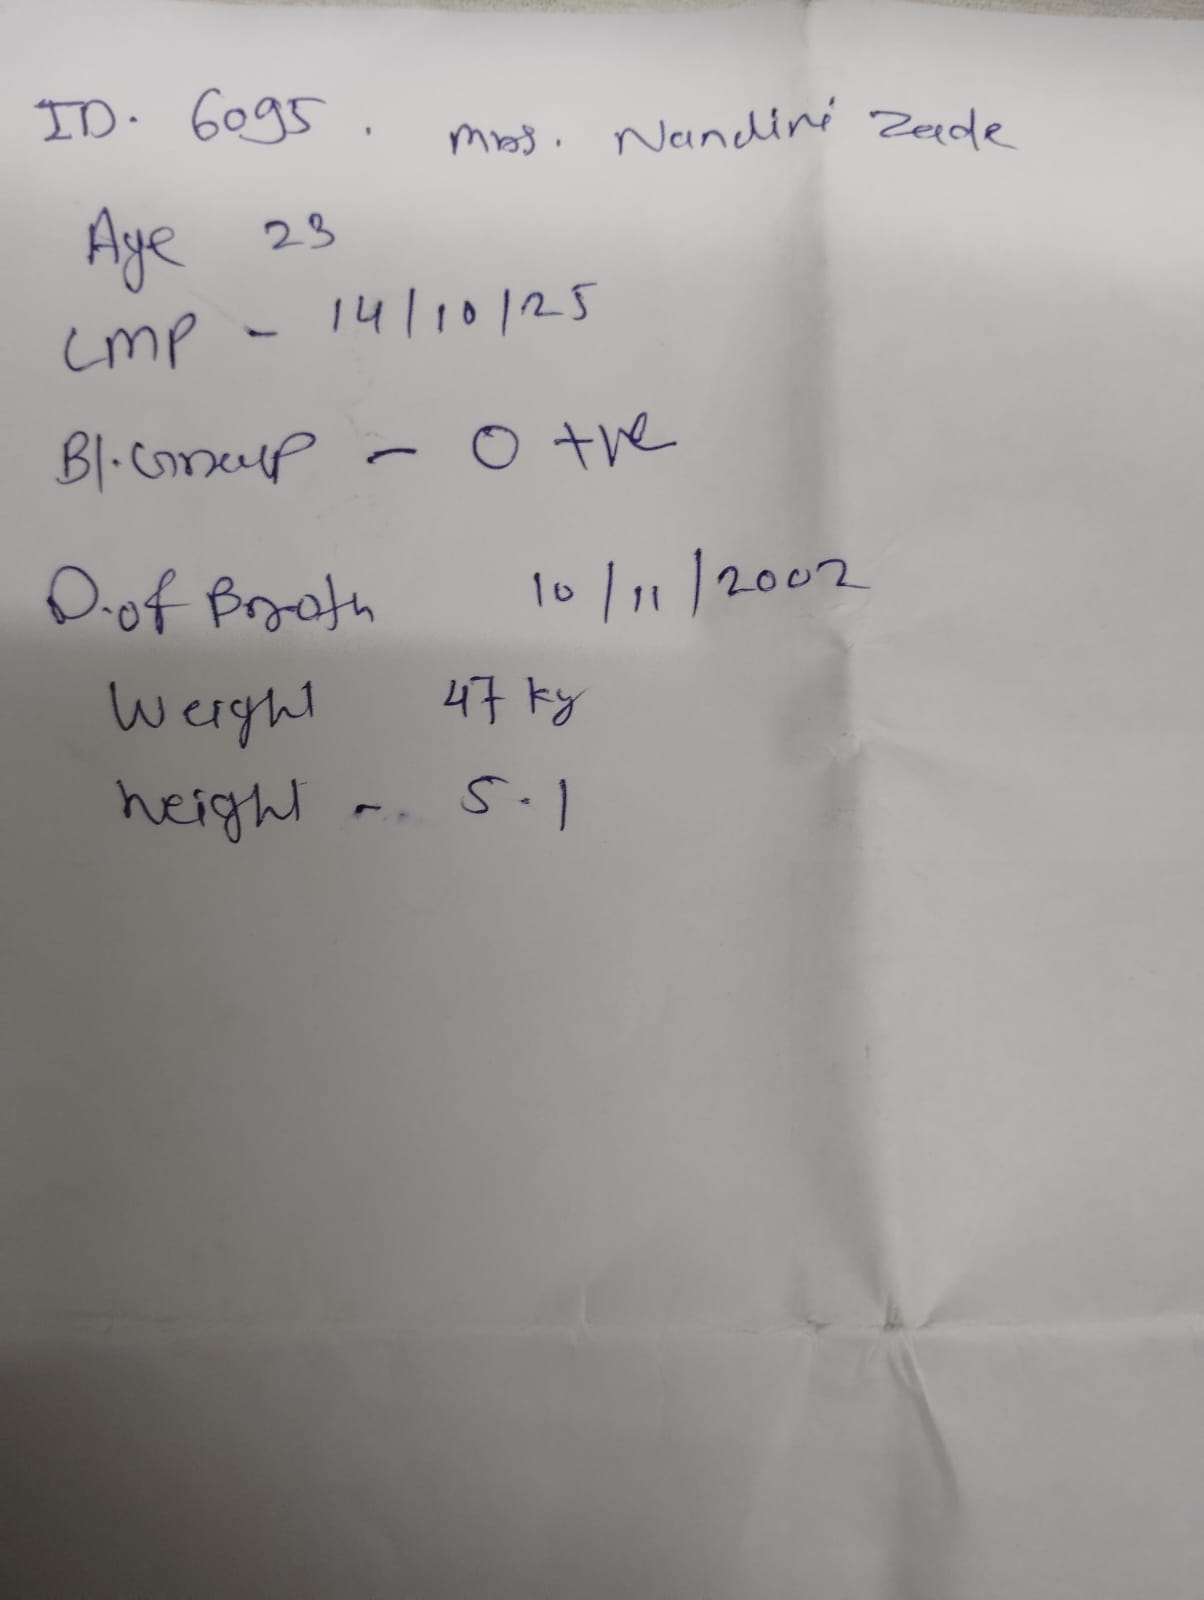 ID. 6095. Mrs. Nandini Zade
Age 23
LMP - 14/10/25
Bl. Group - O +ve
D. of Birth 10/11/2002
Weight 47 kg
height - 5.1